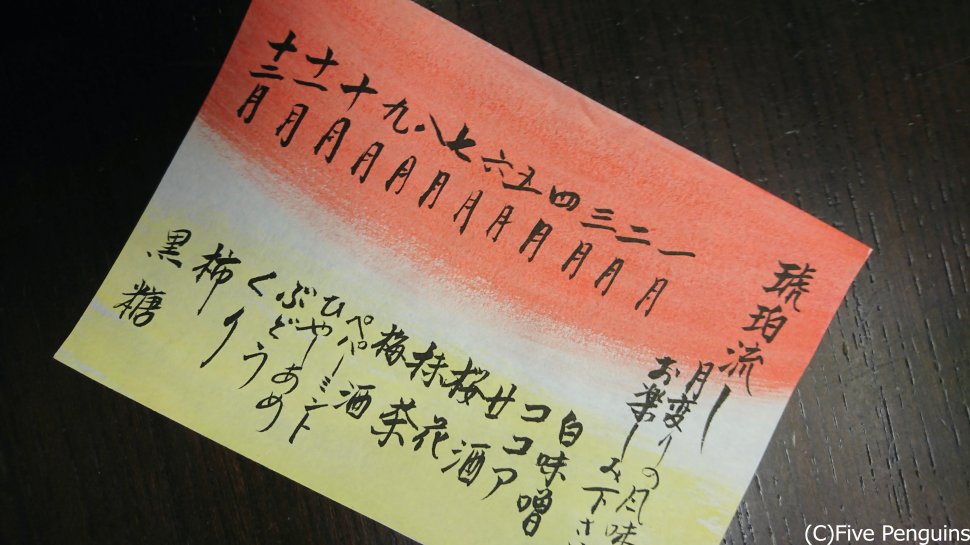 琥珀流し
月変りの風味
お楽しみ下さ
一月 白味噌
二月 ココア
三月 甘酒
四月 桜花
五月 抹茶
六月 梅酒
七月 ペパーミント
八月 ひやしあめ
九月 ぶどう
十月 くり
十一月 柿
十二月 黒糖
(C)Five Penguins